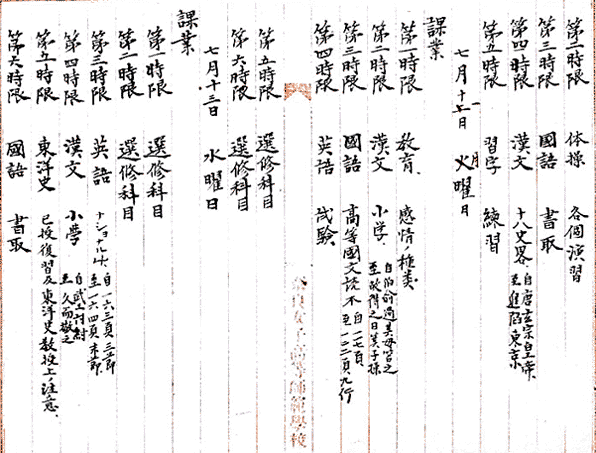 第二時限 体操 各個演習
第三時限 國語 書取
第四時限 漢文 十八史畧 自唐玄宗皇帝 至進陷東京
第五時限 習字 練習
七月十二日 火曜日
課業
第一時限 教育 感情ノ種類
第二時限 漢文 小学
第三時限 國語 高等國文読本 自一一七頁 至一二二頁九行
第四時限 英語 試験
第五時限 選修科目
第六時限 選修科目
奈良女子高等師範學校
七月十三日 水曜日
課業
第一時限 選修科目
第二時限 選修科目
第三時限 英語 ナショナル 自一六三頁三節 至一六四頁末節
第四時限 漢文 小學 自武王討紂 至久而敬之
第五時限 東洋史 已授復習及東洋史教授上ノ注意
第六時限 國語 書取